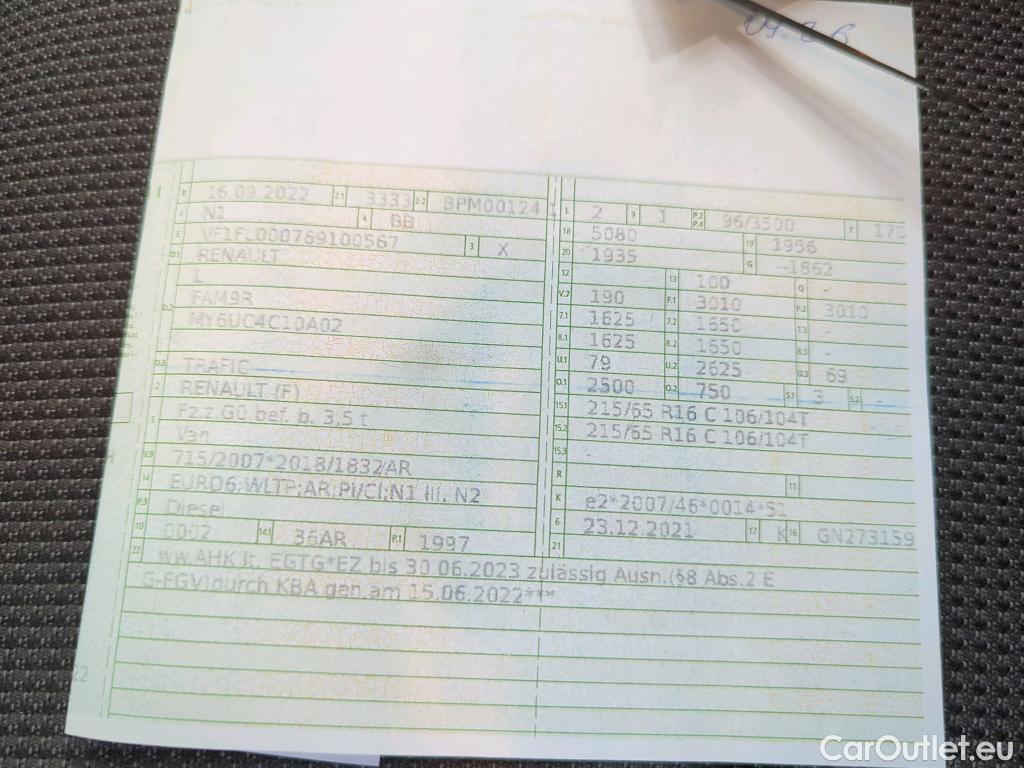 04.26
B 16.09.2022 2.1 3333 2.2 BPM00124 1
J N1 4 BB
E VF1FL000769100567 3 X
D.1 RENAULT
L
D.2 FAM9R
MY6UC4C10A02
D.3 TRAFIC
2 RENAULT (F)
5 Fz.z.Gü bef. b. 3,5 t
Van
V.9 715/2007*2018/1832AR
14 EURO6;WLTP;AR;PI/CI;N1 III, N2
P.3 Diesel
10 0002 14.1 36AR P.1 1997
L 2 9 1 P.2 P.4 96/3500 T 170
18 5080 19 1956
20 1935 G -1862
12 13 100 Q -
V.7 190 F.1 3010 F.2 3010
7.1 1625 7.2 1650 7.3 -
8.1 1625 8.2 1650 8.3 -
U.1 79 U.2 2625 U.3 69
O.1 2500 O.2 750 S.1 3 S.2 -
15.1 215/65 R16 C 106/104T
15.2 215/65 R16 C 106/104T
15.3 -
R 11
K e2*2007/46*0014*51
6 23.12.2021 17 K 16 GN273159
21
22 ww.AHK lt. EGTG*EZ bis 30.06.2023 zulässig Ausn.(§8 Abs.2 E
G-FGV)durch KBA gen.am 15.06.2022***
22
CarOutlet.eu